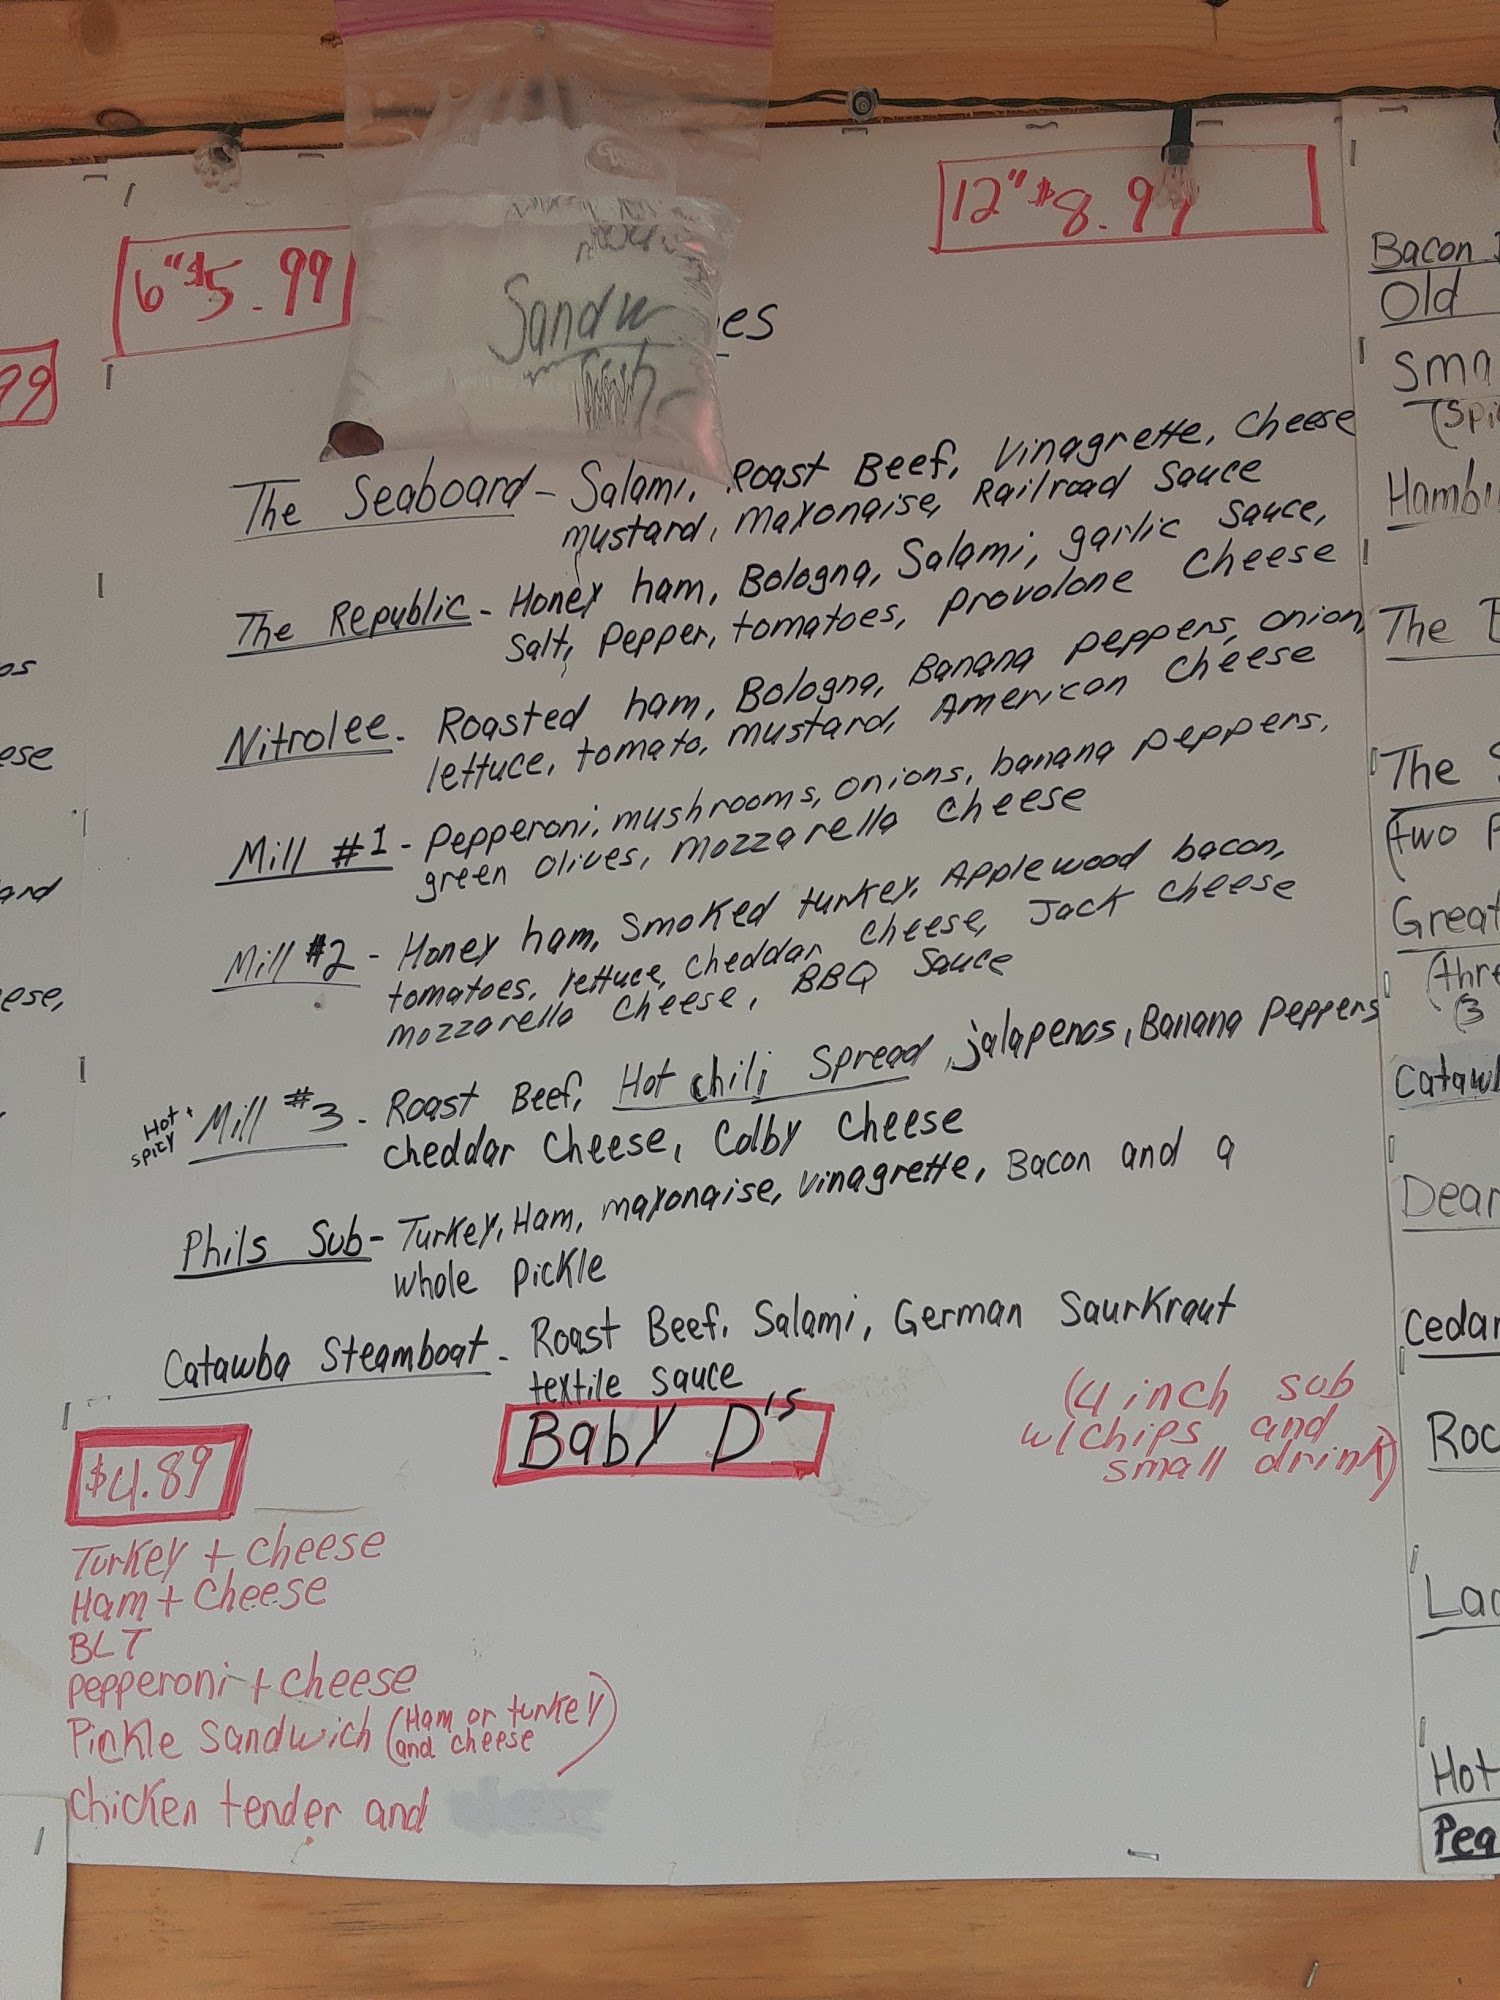 6" $5.99
12" $8.99
99
Sandw es
The Seaboard - Salami, Roast Beef, Vinagrette, Cheese
mustard, mayonaise, Railroad Sauce
The Republic - Honey ham, Bologna, Salami, garlic sauce,
salt, pepper, tomatoes, provolone cheese
Nitrolee - Roasted ham, Bologna, Banana peppers, onion,
lettuce, tomato, mustard, American cheese
Mill #1 - Pepperoni, mushrooms, onions, banana peppers,
green olives, mozzarella cheese
Mill #2 - Honey ham, smoked turkey, Applewood bacon,
tomatoes, lettuce, cheddar cheese, Jack cheese
mozzarella cheese, BBQ sauce
Hot +
spicy
Mill #3 - Roast Beef, Hot chili spread, jalapenos, Banana peppers
cheddar cheese, Colby cheese
Phils Sub - Turkey, Ham, mayonaise, vinagrette, Bacon and a
whole pickle
Catawba Steamboat - Roast Beef, Salami, German Saurkraut
textile sauce
$4.89
Baby D's
(4 inch sub
w/chips and
small drink)
Turkey + cheese
Ham + cheese
BLT
pepperoni + cheese
Pickle sandwich (Ham or turkey
and cheese)
chicken tender and
ese
ard
ese,
Bacon
Old
Sma
(Spi
Hamb
The
The
(two P
Great
(thre
(3
Cataw
Dear
Cedar
Roc
Lac
Hot
Pea